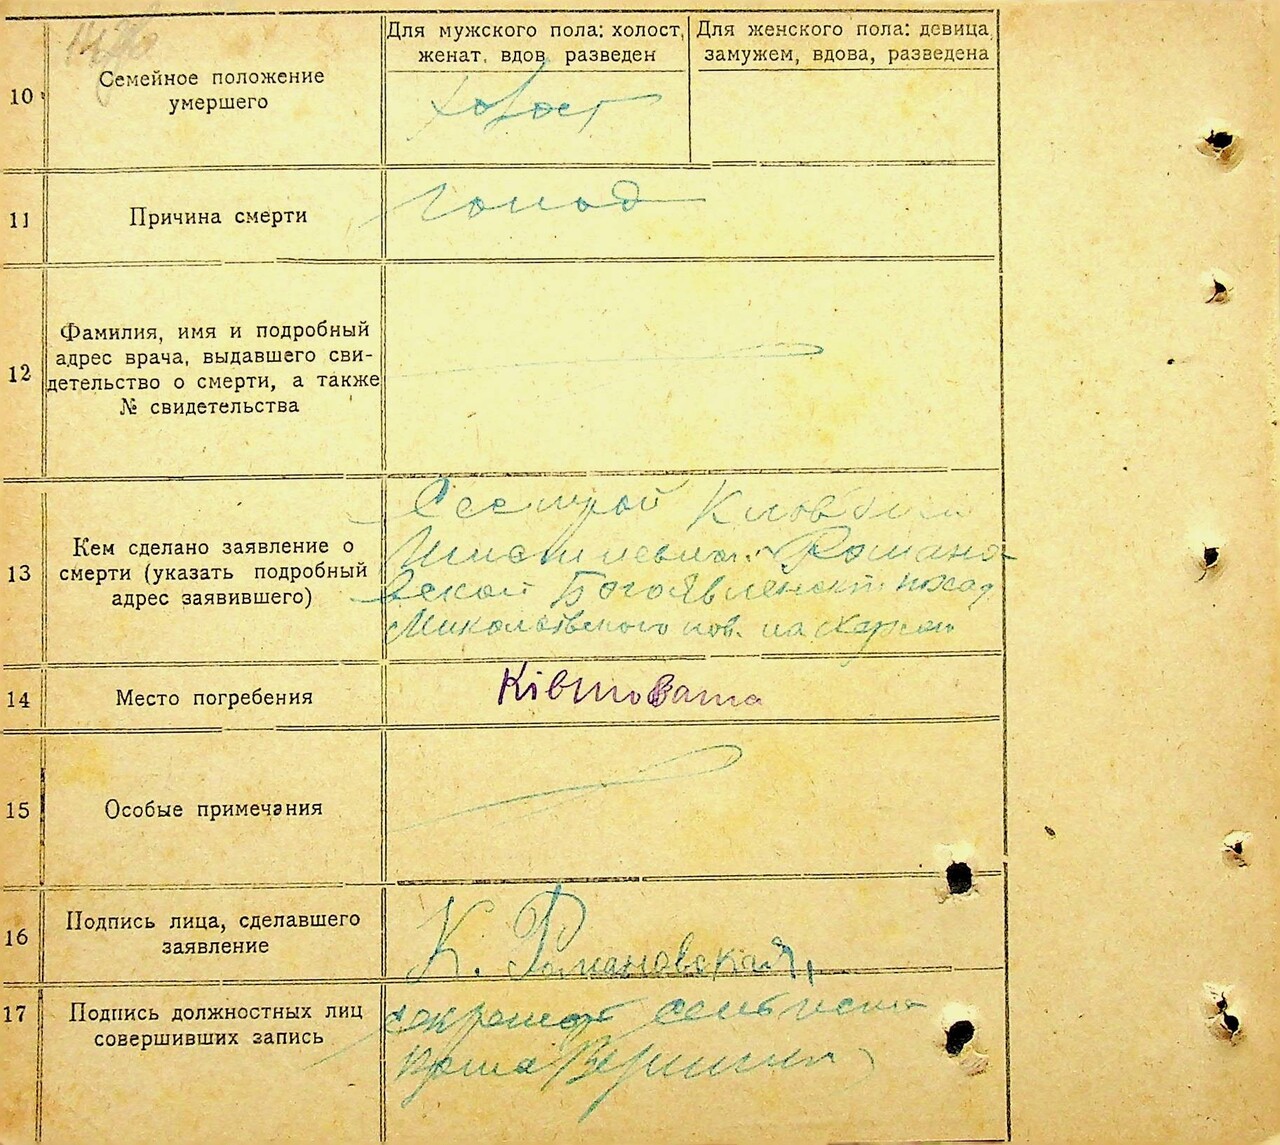 Для мужского пола: холост,
женат, вдов, разведен
Для женского пола: девица,
замужем, вдова, разведена
10
Семейное положение
умершего
холост
11
Причина смерти
голод
12
Фамилия, имя и подробный
адрес врача, выдавшего сви-
детельство о смерти, а также
№ свидетельства
13
Кем сделано заявление о
смерти (указать подробный
адрес заявившего)
Сестрой
Романо-
вской Богоявленск посад
Николаевского
14
Место погребения
Кившовата
15
Особые примечания
16
Подпись лица, сделавшего
заявление
К. Романовская,
17
Подпись должностных лиц
совершивших запись
секретарь